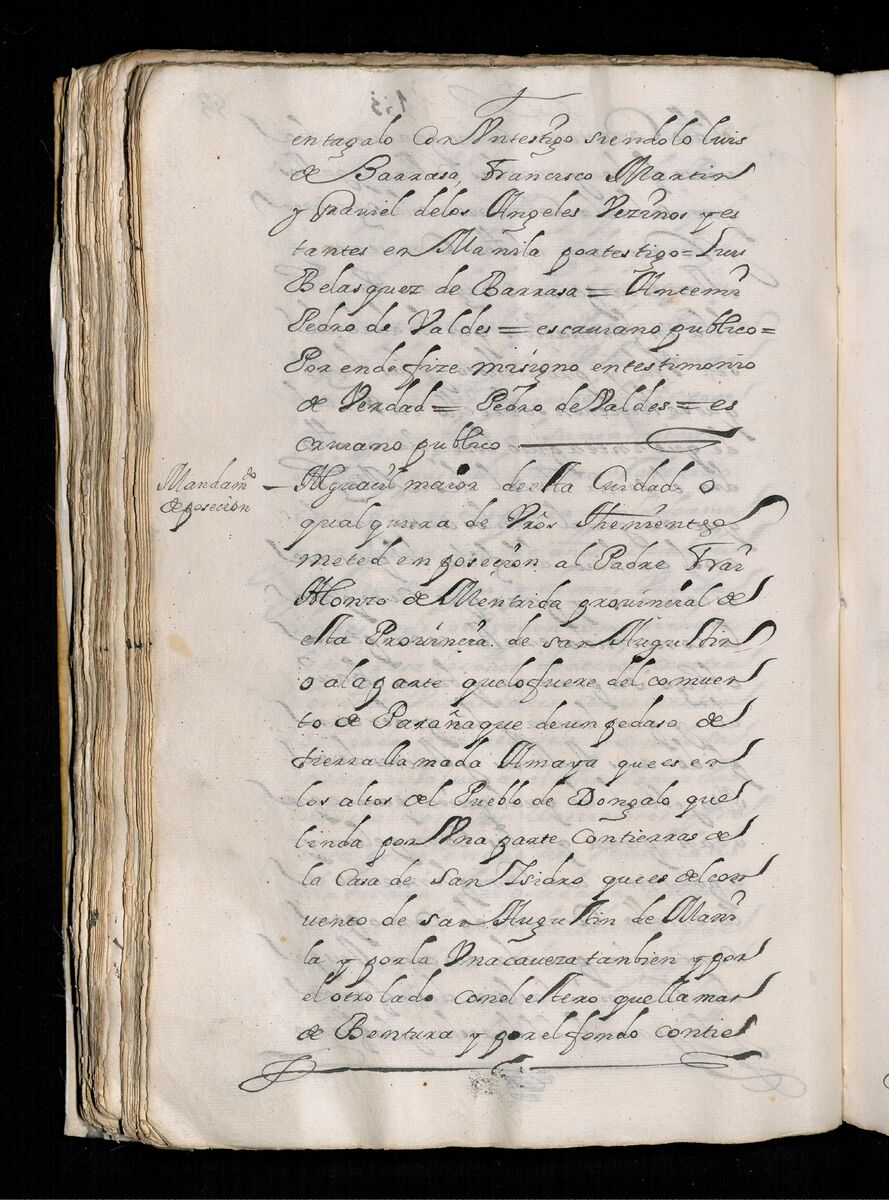 en tagalo con Vn testigo siendolo luis
de Barrasa, Francisco Martin
y Graviel de los Angeles Vezinos y es
tantes en Manila por testigo = Luis
Belasquez de Barrasa = Ante mi
Pedro de Valdes = escauano publico =
Por ende fize mi signo en testimonio
de Verdad = Pedro de Valdes = es
criuano publico
Mandam.to
de posecion
Alguacil maior de esta Ciudad o
qualquiera de Vros Thenientes
meted en posecion al Padre Frai
Alonzo de Mentrida provincial de
esta Provincia de san Augustin
o a la parte que lo fuere del comuen
to de Parañaque de un pedaso de
tierra llamada Amaya que es en
los altos del Pueblo de Dongalo que
linda por Vna parte con tierras de
la Casa de San Isidro que es del con
uento de san Augustin de Mani
la y por la Vna caueza tanbien y por
el otro lado con el estero que llaman
de Bentura y por el fondo con tie